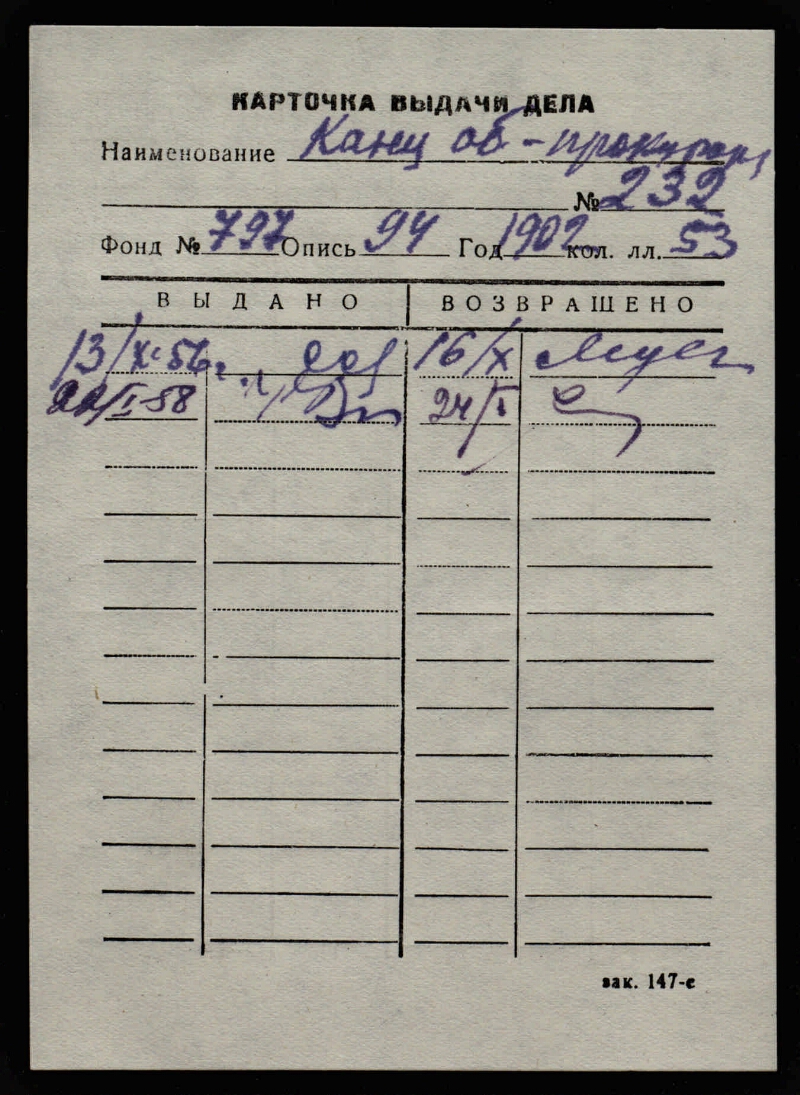 КАРТОЧКА ВЫДАЧИ ДЕЛА
Наименование Канц об-прокурора
№ 232
Фонд № 797 Опись 94 Год 1902 кол. лл. 53
ВЫДАНО ВОЗВРАЩЕНО
13/X-56г. 16/X
22/I-58 24/I
зак. 147-с